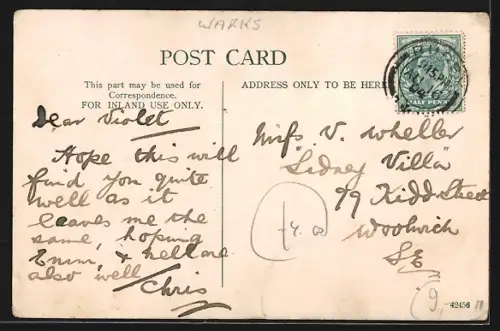 WARKS
POST CARD
This part may be used for
Correspondence.
FOR INLAND USE ONLY.
ADDRESS ONLY TO BE HERE
Dear Violet
Hope this will
find you quite
well as it
leaves me the
same, hoping
& are
also well
Chris
Miss V. Wheller
"Sidney Villa"
79 Kidd Street
Woolwich
SE
HALF PENNY
42456